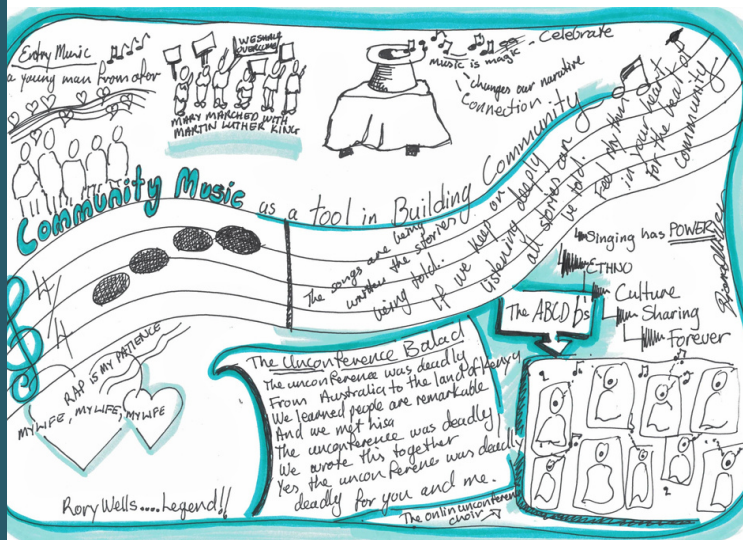 Entry Music
a young man from afar
WE SHALL
OVERCOME
MARY MARCHED WITH
MARTIN LUTHER KING
music is magic
- Celebrate
- changes our narrative
Connection.
Community Music as a tool in Building Community
4/4
The songs are being
written the stories
being told.
If we keep on
listening deeply
all stories can
be told.
Feel rhythm
in your heart
for the beat of
community
Singing has POWER
ETHNO
Culture
Sharing
Forever
The ABCD b's
RAP IS MY PATIENCE
MY WIFE, MY WIFE, MY WIFE
Rory Wells....Legend!!
The Unconference Balad
The unconference was deadly
From Australia to the land of Kenya
We learned people are remarkable
And we met nisa
The unconference was deadly
We wrote this together
Yes the unconference was deadly
deadly for you and me.
The onlin unconference
choir